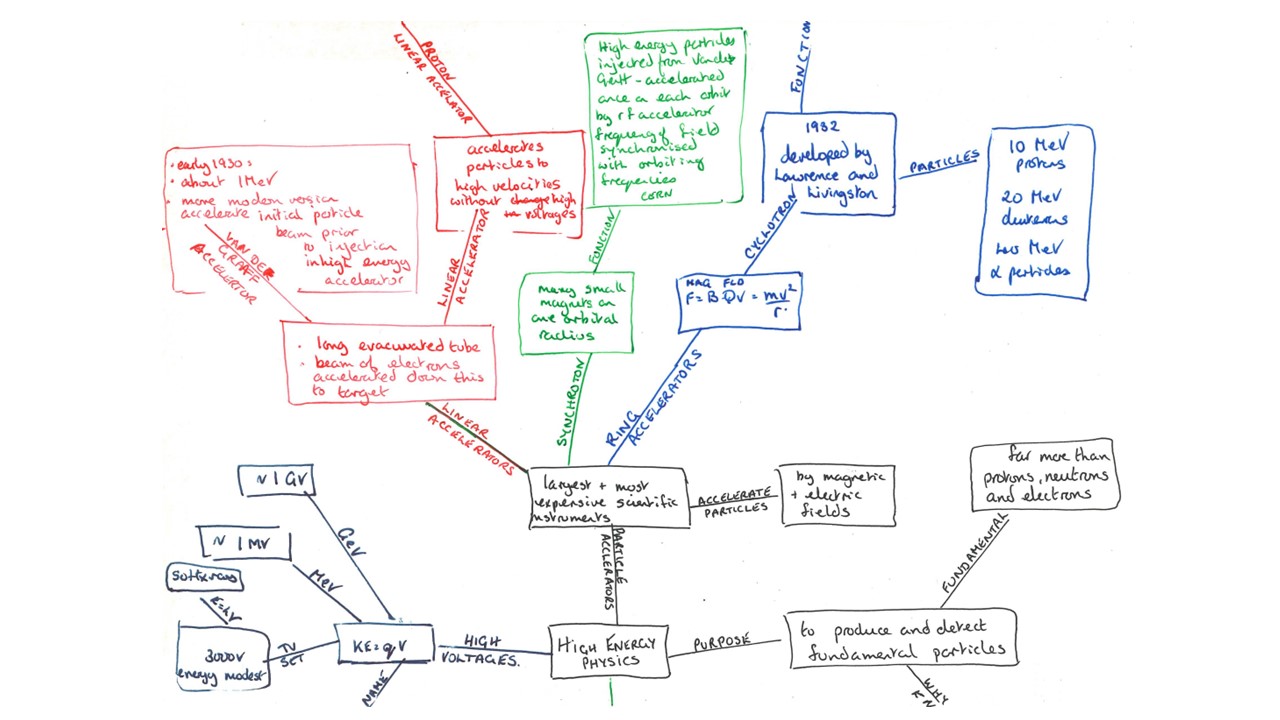 PROTON
LINEAR ACCELATOR
accelerates
particles to
high velocities
without change high
voltages
LINEAR
ACCELERATOR
• early 1930s
• about 1MeV
• more modern version
accelerate initial particle
beam prior
to injection
in high energy
accelerator
VAN DE
GRAFF
ACCELERTOR
• long evacuated tube
• beam of electrons
accelerated down this
to target
LINEAR
ACCELERATORS
High energy particles
injected from Vande
Graff - accelerated
once on each orbit
by rf accelerator
frequency of field
synchronised
with orbiting
frequencies
CORN
FUNCTION
many small
magnets on
one orbital
radius
SYNCHROTON
FONCTION
1932
developed by
Lawrence and
Livingston
PARTICLES
10 MeV
protons
20 MeV
deuterons
40 MeV
α particles
CYCLOTRON
MAG FLD
F=BQV = mv²
r
RING
ACCELERATORS
largest + most
expensive scientific
instruments
ACCELERATE
PARTICLES
by magnetic
+ electric
fields
PARTICLE
ACCLERATORS
HIGH ENERGY
PHYSICS
PURPOSE
to produce and detect
fundamental particles
FUNDAMENTAL
far more than
protons, neutrons
and electrons
WHY
HIGH
VOLTAGES.
KE = qV
NAME
GeV
~ 1GV
MeV
~ 1MV
TV
SET
3000V
energy modest
E=hV
Soft x rays